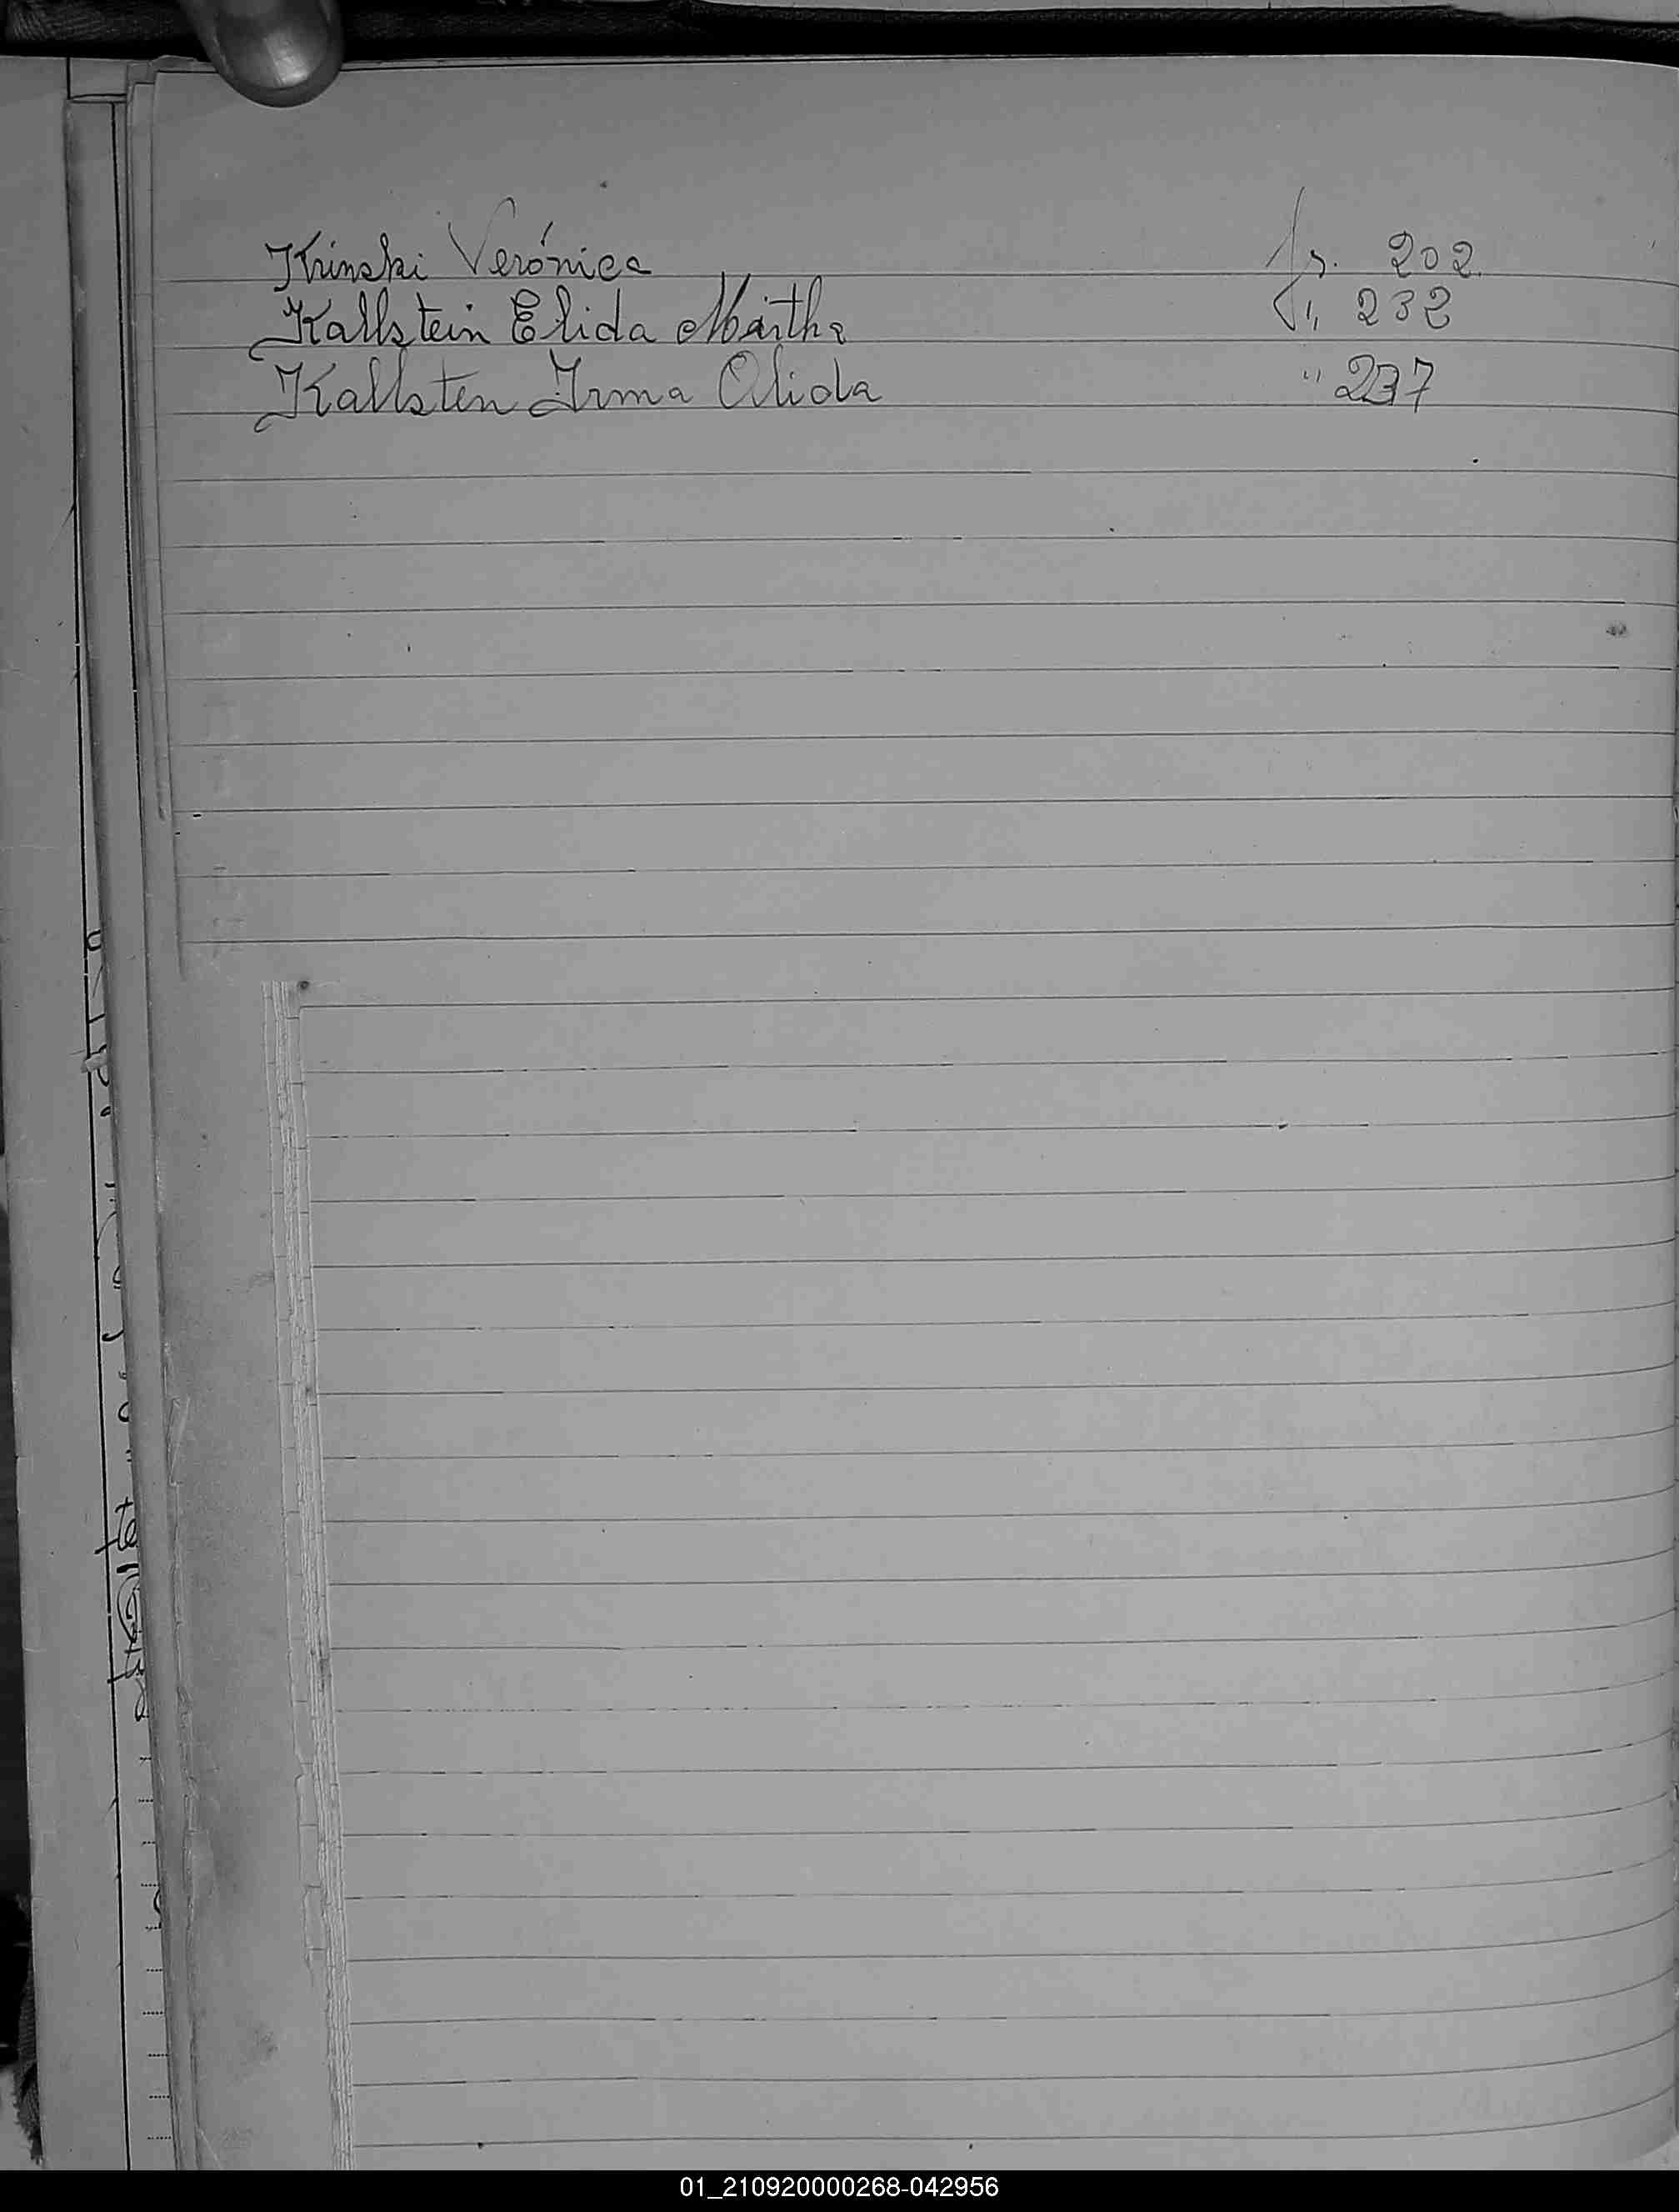 Krinski Verónica fs. 202.
Kallstein Elida Martha " 232
Kallsten Irma Olida " 237
01_210920000268-042956